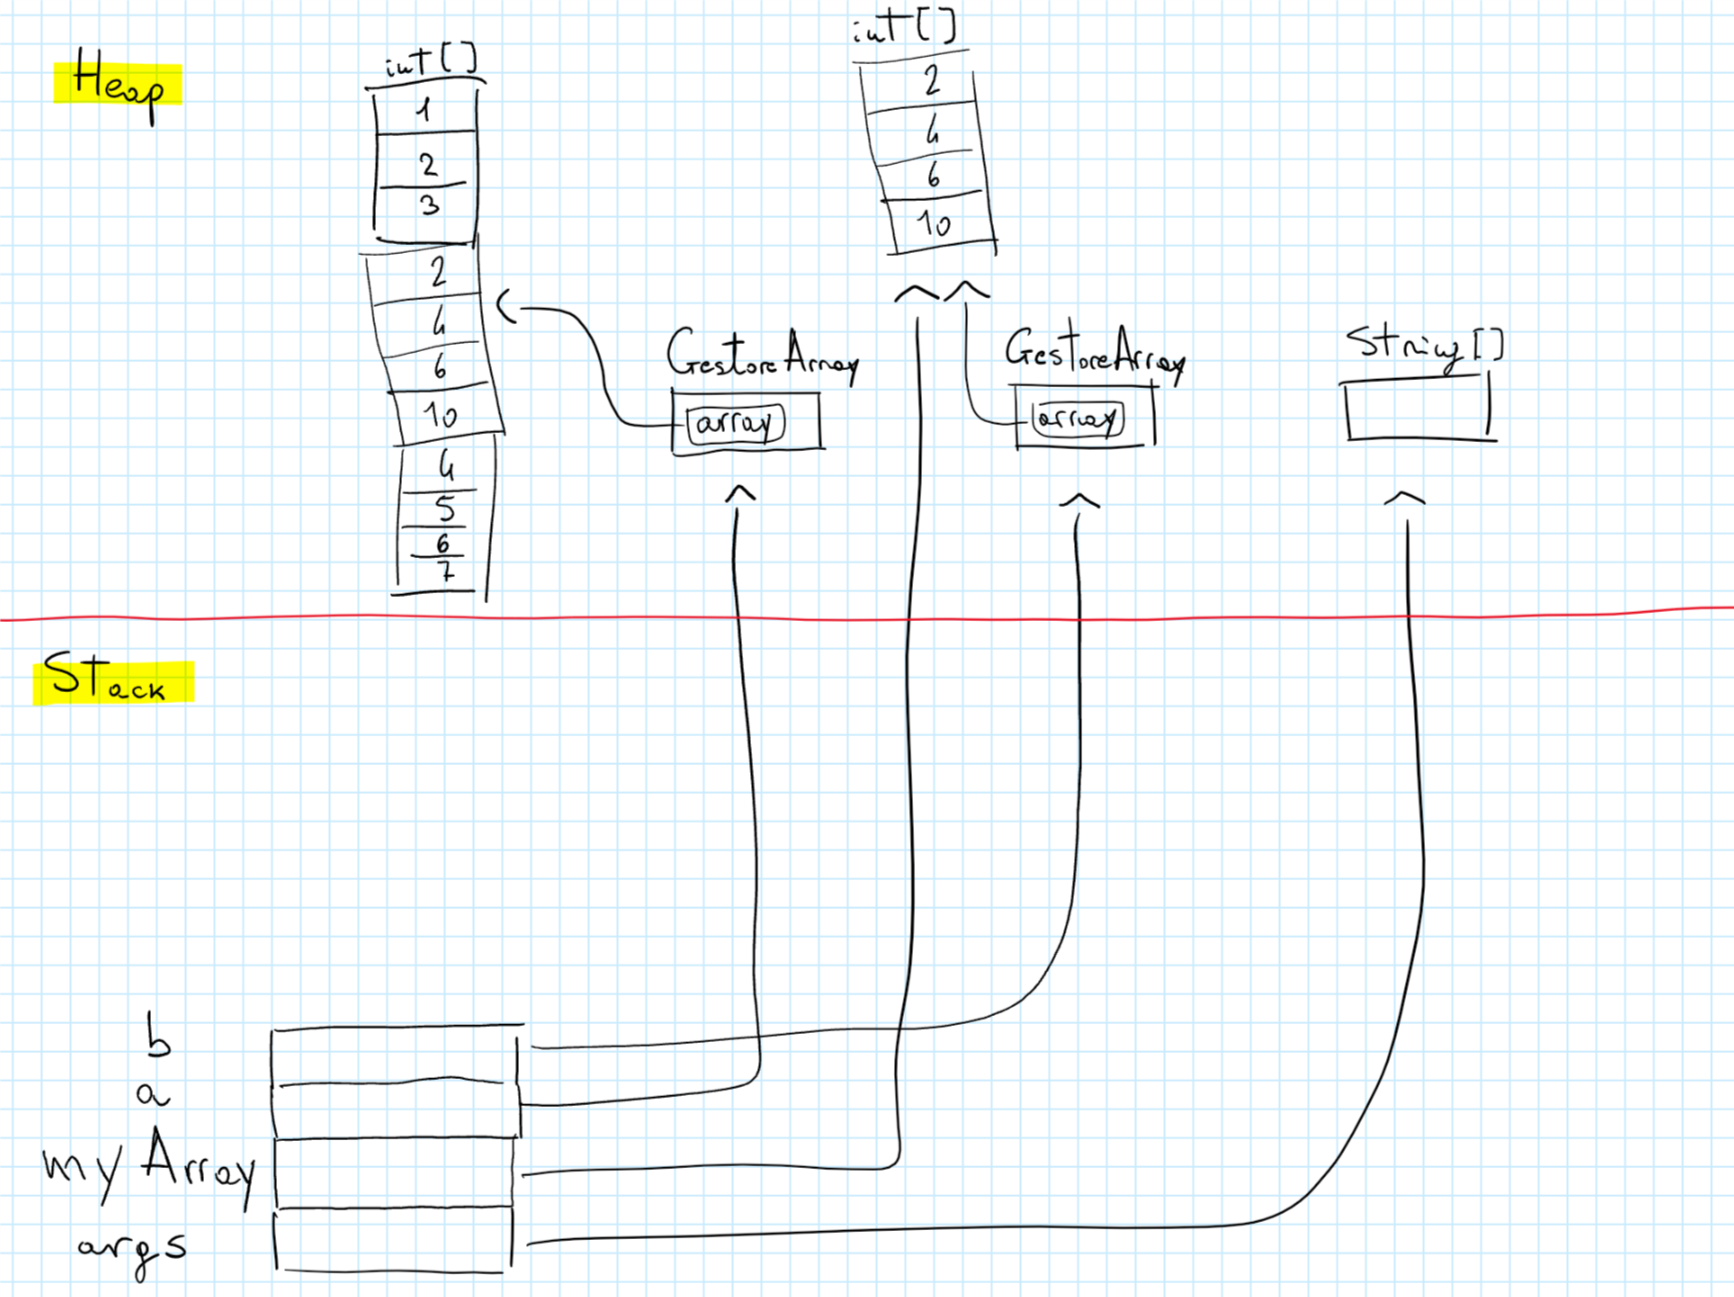 Heap
int[]
1
2
3
2
4
6
10
4
5
6
7
int[]
2
4
6
10
GestoreArray
array
GestoreArray
array
String[]
Stack
b
a
myArray
args